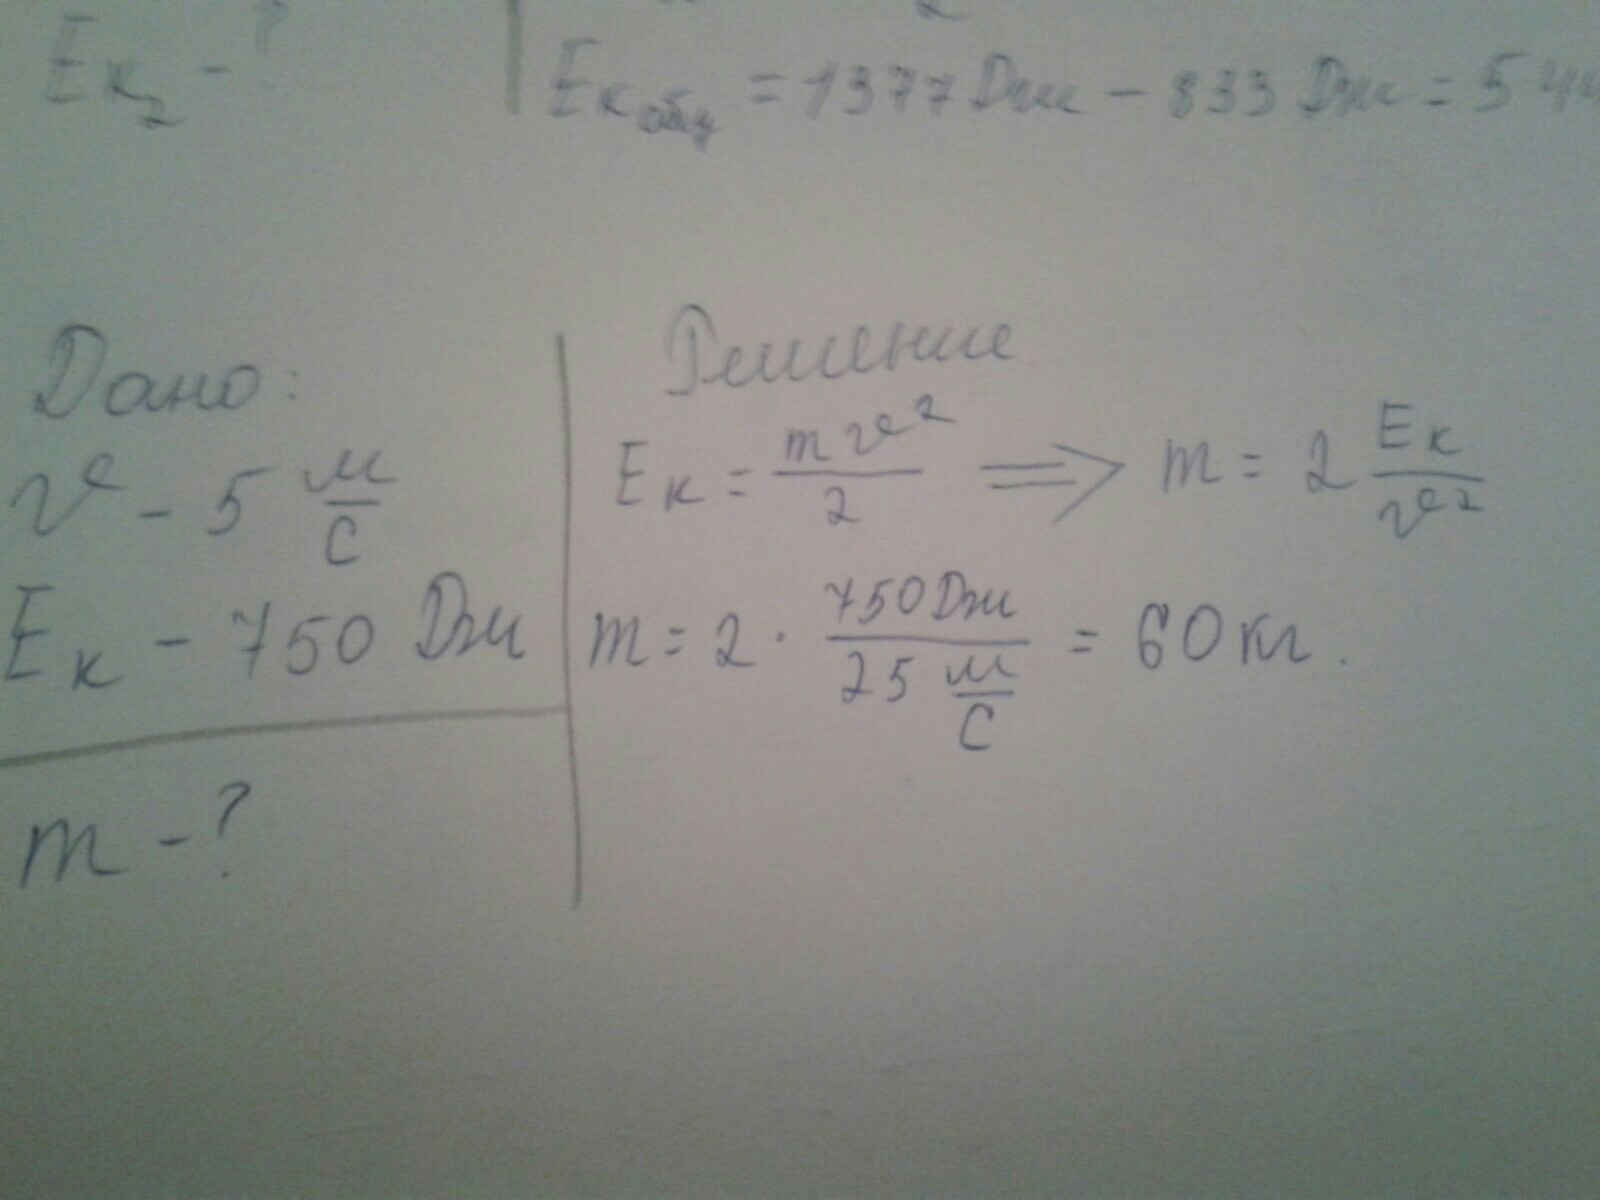 Eк₂ - ?
Eк общ = 1377 Дж - 833 Дж = 544
Дано:
v - 5 м/с
Eк - 750 Дж
m - ?
Решение
Eк = mv²/2 => m = 2 Eк/v²
m = 2 · 750 Дж/25 м/с = 60 кг.